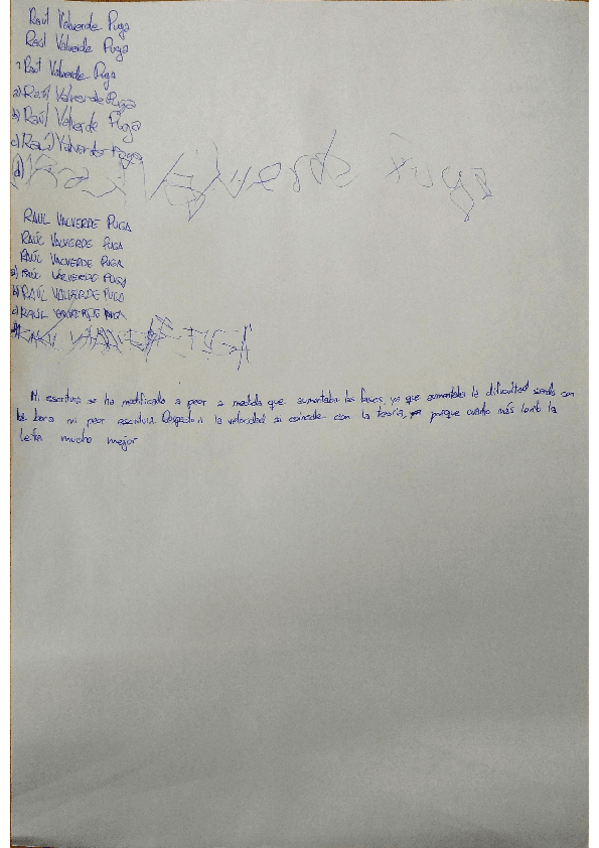 Raúl Valverde Puga
Raúl Valverde Puga
Raúl Valverde Puga
a) Raúl Valverde Puga
b) Raúl Valverde Puga
c) Raúl Valverde Puga
d) Raúl Valverde Puga
RAUL VALVERDE PUGA
RAÚL VALVERDE PUGA
RAÚL VALVERDE PUGA
a) RAÚL VALVERDE PUGA
b) RAÚL VALVERDE PUGA
c) RAÚL VALVERDE PUGA
RAUL VALVERDE PUGA
Mi escritura se ha modificado a peor a medida que aumentaba las fases, ya que aumentaba la dificultad siendo con
la boca mi peor escritura. Respecto a la velocidad si coincide con la teoría, porque cuanto más lento la
letra mucho mejor